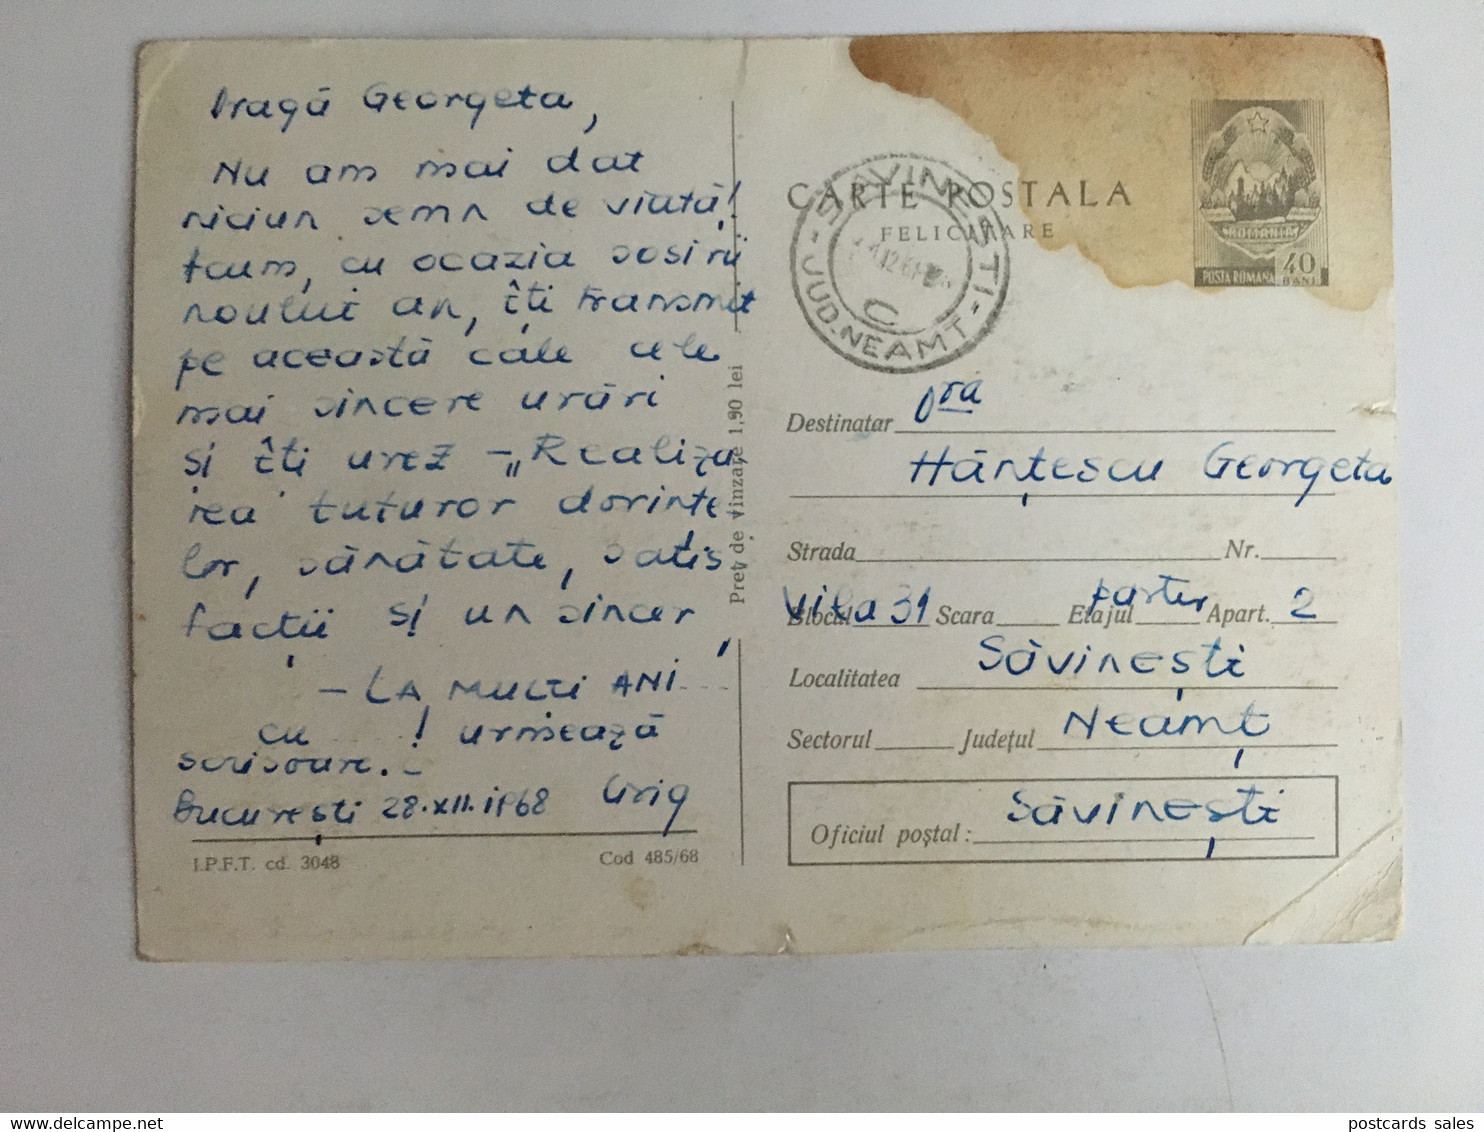 Dragă Georgeta,
Nu am mai dat
niciun semn de viată!
acum, cu ocazia sosirii
noului an, îți transmit
pe această cale cele
mai sincere urări
si îti urez - „Realiza
rea tuturor dorinte
lor, sănătate, satis
facții și un sincer,
- LA MULȚI ANI
cu ! urmează
scrisoare. -
București 28.XII.1968
I.P.F.T. cd. 3048
Cod 485/68
Preț de vînzare 1,90 lei
CARTE POSTALA
FELICITARE
SAVINESTI
JUD. NEAMT
C
ROMANIA
POSTA ROMANA 40 BANI
Destinatar
Hănțescu Georgeta
Strada Nr.
Blocul Vila 31 Scara Etajul parter Apart. 2
Localitatea Săvinești
Sectorul Județul Neamț
Oficiul poștal: Săvinești
postcards sales